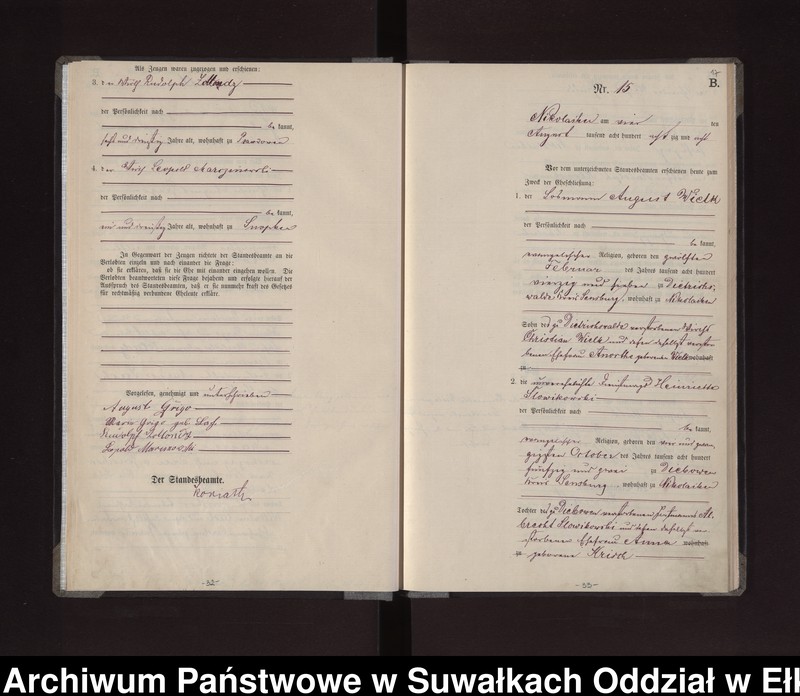 Als Zeugen waren zugezogen und erschienen:
3. der Wirth Rudolph
der Persönlichkeit nach
be kannt,
sechs und dreißig Jahre alt, wohnhaft zu
4. der Wirth Leopold
der Persönlichkeit nach
be kannt,
und dreißig Jahre alt, wohnhaft zu Snopken
In Gegenwart der Zeugen richtete der Standesbeamte an die
Verlobten einzeln und nach einander die Frage:
ob sie erklären, daß sie die Ehe mit einander eingehen wollen. Die
Verlobten beantworteten diese Frage bejahend und erfolgte hierauf der
Ausspruch des Standesbeamten, daß er sie nunmehr kraft des Gesetzes
für rechtmäßig verbundene Eheleute erkläre.
Vorgelesen, genehmigt und unterschrieben
August Grigo
Marie Grigo geb.
Rudolph
Leopold
Der Standesbeamte.
-32-
B.
Nr. 15
Nikolaiken am vier ten
August tausend acht hundert acht zig und acht
Vor dem unterzeichneten Standesbeamten erschienen heute zum
Zweck der Eheschließung:
1. der Losmann August Wielk
der Persönlichkeit nach
be kannt,
evangelischer Religion, geboren den zwölften
Februar des Jahres tausend acht hundert
vierzig und sieben zu Dietrichs-
walde Kreis Sensburg, wohnhaft zu Nikolaiken
Sohn des zu Dietrichswalde verstorbenen Wirths
Christian Wielk und dessen daselbst verstor-
benen Ehefrau Anorthe geborenen Wielk wohnhaft
zu
2. die unverehelichte Dienstmagd Heinriette
Slowikowski
der Persönlichkeit nach
be kannt,
evangelischer Religion, geboren den vier und zwan-
zigsten October des Jahres tausend acht hundert
fünfzig und zwei zu Diebowen
Kreis Sensburg, wohnhaft zu Nikolaiken
Tochter des zu Diebowen verstorbenen Al-
brecht Slowikowski und dessen daselbst ver-
storbenen Ehefrau Anna wohnhaft
zu geborene Krisch
-33-
Archiwum Państwowe w Suwałkach Oddział w Eł